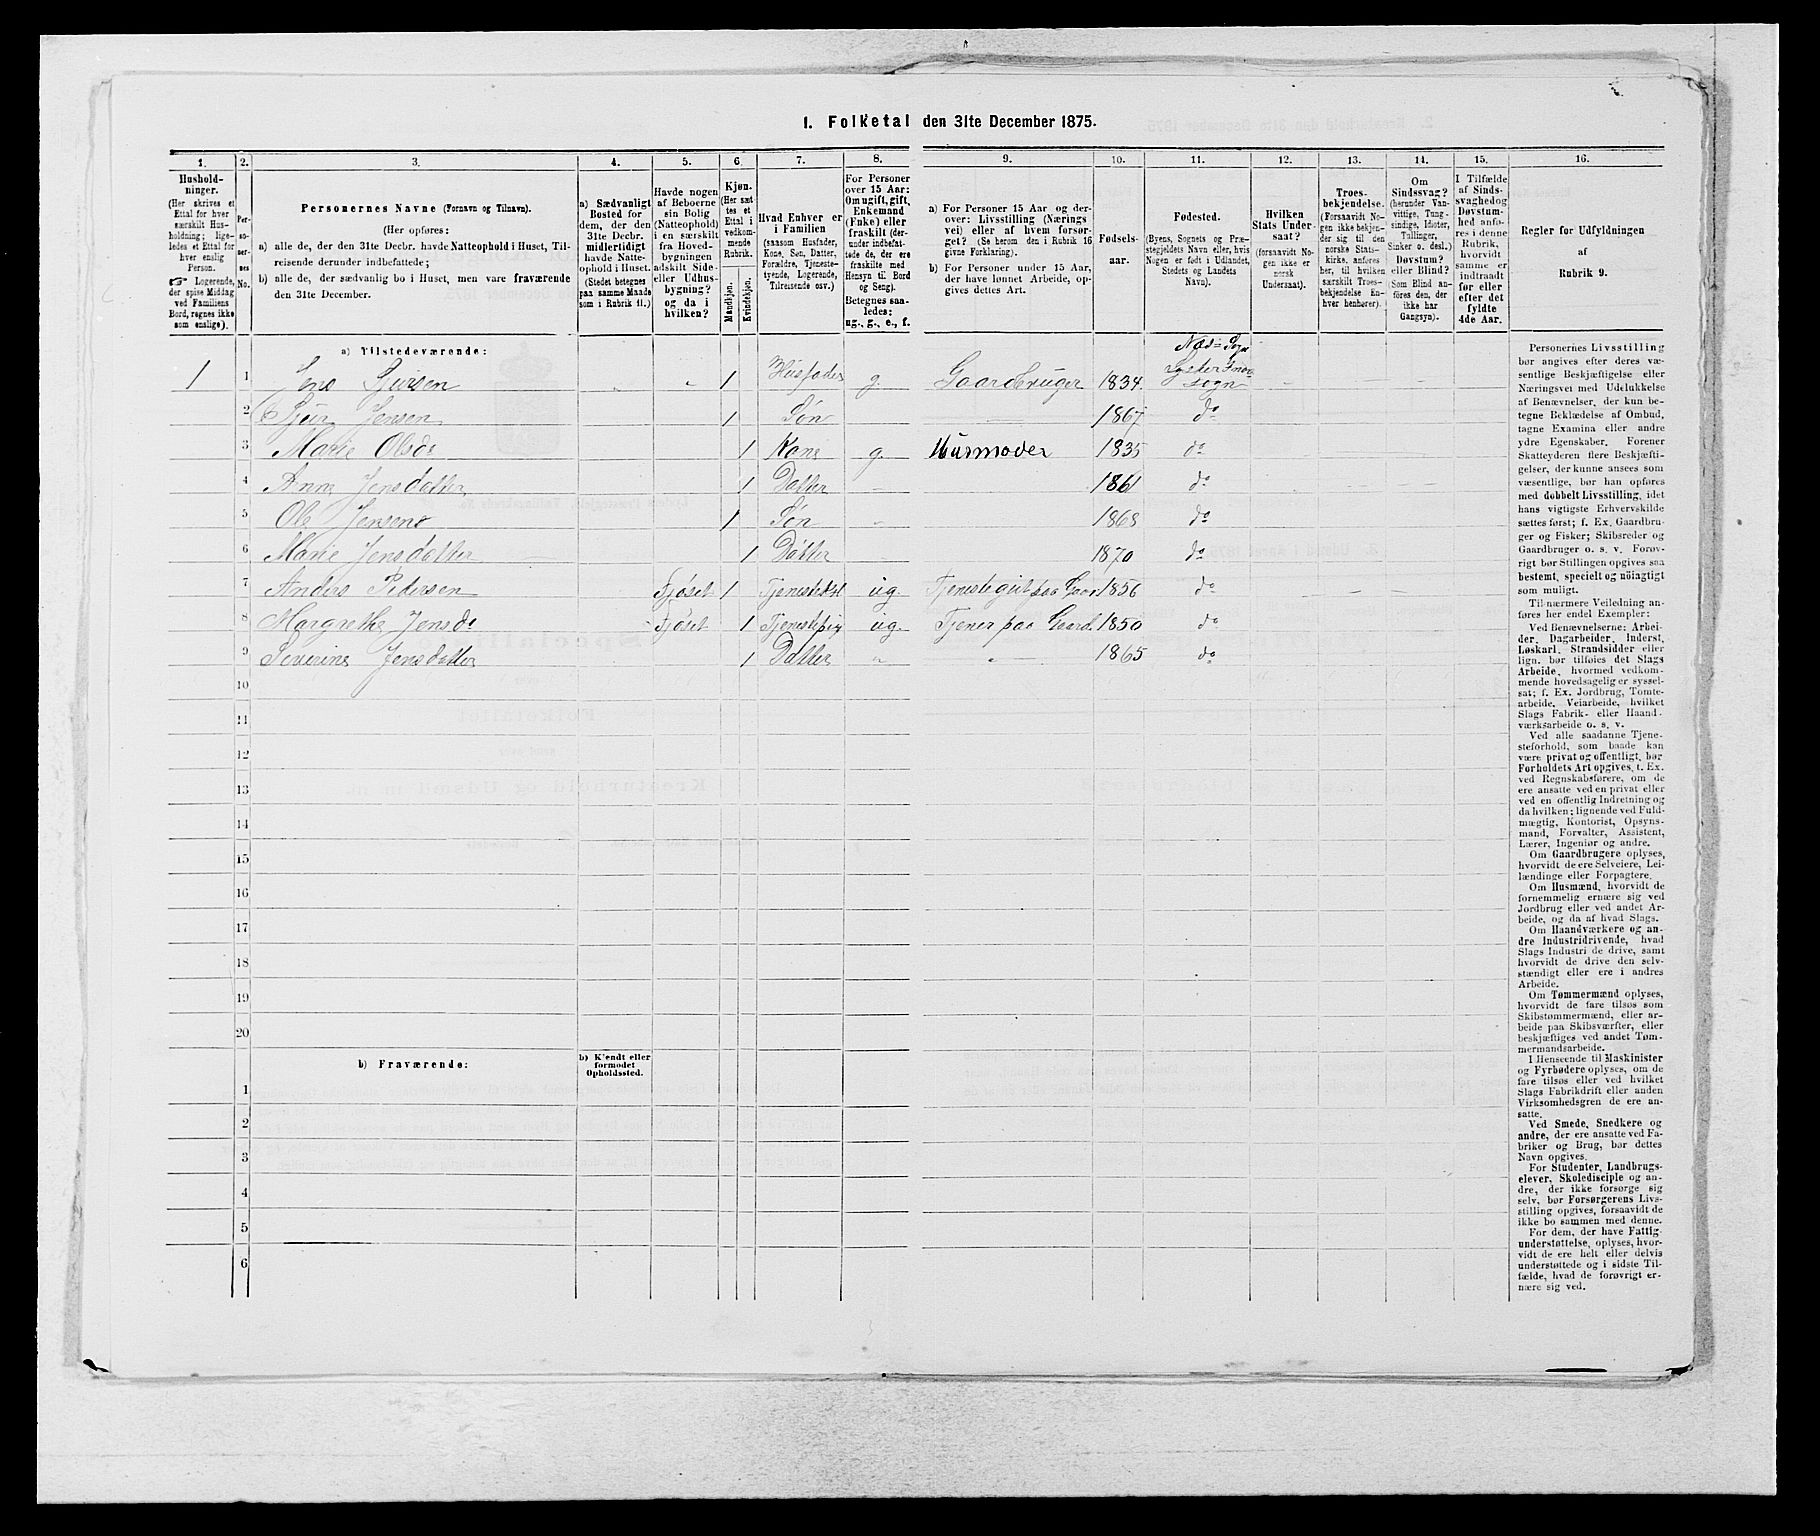 1. Folketal den 31te December 1875.
1. 2. 3. 4. 5. 6. 7. 8. 9. 10. 11. 12. 13. 14. 15. 16.
Hushold-
ninger.
(Her skrives et
Ettal for hver
særskilt Hus-
holdning; lige-
ledes et Ettal for
hver enslig
Person.
☞ Logerende,
der spise Middag
ved Familiens
Bord, regnes ikke
som enslige).
Per-
so-
ner-
nes
No.
Personernes Navne (Fornavn og Tilnavn).
(Her opføres:
a) alle de, der den 31te Decbr. havde Natteophold i Huset, Til-
reisende derunder indbefattede;
b) alle de, der sædvanlig bo i Huset, men vare fraværende
den 31te December.
a) Sædvanligt
Bosted for
dem, der den
31te Decbr.
midlertidigt
havde Natte-
ophold i Huset.
(Stedet betegnes
paa samme Maade
som i Rubrik 11.)
Havde nogen
af Beboerne
sin Bolig
(Natteophold)
i en særskilt
fra Hoved-
bygningen
adskilt Side-
eller Udhus-
bygning?
og da i
hvilken?
Kjøn.
(Her sæt-
tes et
Ettal i
vedkom-
mende
Rubrik.
Mandkjøn.
Kvindekjøn.
Hvad Enhver er
i Familien
(saasom Husfader,
Kone, Søn, Datter,
Forældre, Tjeneste-
tyende, Logerende,
Tilreisende osv.)
For Personer
over 15 Aar:
Om ugift, gift,
Enkemand
(Enke) eller
fraskilt (der-
under indbefat-
tede de, der ere
fraskilte med
Hensyn til Bord
og Seng).
Betegnes saa-
ledes:
ug., g., e., f.
a) For Personer 15 Aar og der-
over: Livsstilling (Nærings-
vei) eller af hvem forsør-
get? (Se herom den i Rubrik 16
givne Forklaring).
b) For Personer under 15 Aar,
der have lønnet Arbeide, op-
gives dettes Art.
Fødsels-
aar.
Fødested.
(Byens, Sognets og Præ-
stegjeldets Navn eller, hvis
Nogen er født i Udlandet,
Stedets og Landets
Navn).
Hvilken
Stats Under-
saat?
(forsaavidt No-
gen ikke er
norsk
Undersaat).
Troes-
bekjendelse.
(Forsaavidt No-
gen ikke bekjen-
der sig til den
norske Stats-
kirke, anføres
her, til hvilken
særskilt Troes-
bekjendelse En-
hver henhører).
Om
Sindssvag?
(herunder Van-
vittige, Tung-
sindige, Idioter,
Tullinger,
Sinker o. desl.)
Døvstum?
eller Blind?
(Som Blind an-
føres den, der
ikke har
Gangsyn).
I Tilfælde
af Sinds-
svaghed og
Døvstum-
hed anfø-
res i denne
Rubrik,
hvorvidt
samme er
indtraadt
før eller
efter det
fyldte
4de Aar.
Regler for Udfyldningen
af
Rubrik 9.
a) Tilstedeværende:
1 1 Jens 1 Husfader g. Gaardbruger 1834 Næs Sogn Lyster
sogn
2 Jensen 1 Søn 1867 do
3 Marie Olsdr 1 Kone g. Husmoder 1835 do
4 Anna Jensdatter 1 Datter 1861 do
5 Ole Jensen 1 Søn 1868 do
6 Marie Jensdatter 1 Datter 1870 do
7 Anders Pedersen Fjøset 1 ug. Tjenestegut paa Gaard 1856 do
8 Margrethe Jensdr Fjøset 1 Tjenestepig ug. Tjener paa Gaard 1850 do
9 Severine Jensdatter 1 Datter 1865 do
10
11
12
13
14
15
16
17
18
19
20
b) Fraværende: b) Kjendt eller
formodet
Opholdssted.
1
2
3
4
5
6
Personernes Livsstilling
bør angives efter deres væ-
sentlige Beskjæftigelse eller
Næringsvei med Udelukkelse
af Benævnelser, der kun be-
tegne Beklædelse af Ombud,
tagne Examina eller andre
ydre Egenskaber. Forener
Skatteyderen flere Beskjæfti-
gelser, der kunne ansees som
væsentlige, bør han opføres
med dobbelt Livsstilling, idet
hans vigtigste Erhvervskilde
sættes først; f. Ex. Gaardbru-
ger og Fisker; Skibsreder og
Gaardbruger o. s. v. Forøv-
rigt bør Stillingen opgives saa
bestemt, specielt og nöiagtigt
som muligt.
Til nærmere Veiledning an-
føres her endel Exempler:
Ved Benævnelserne: Arbei-
der, Dagarbeider, Inderst,
Løskarl, Strandsidder eller
lign. bør tilføies det Slags
Arbeide, hvormed vedkom-
mende hovedsagelig er syssel-
sat; f. Ex. Jordbrug, Tomte-
arbeide, Veiarbeide, hvilket
Slags Fabrik- eller Haand-
værksarbeide o. s. v.
Ved alle saadanne Tjene-
steforhold, som baade kan
være privat og offentligt, bør
Forholdets Art opgives, t. Ex.
ved Regnskabsførere, om de
ere ansatte ved en privat eller
ved en offentlig Indretning og
da hvilken; lignende ved Fuld-
mægtig, Kontorist, Opsyns-
mand, Forvalter, Assistent,
Lærer, Ingeniør og andre.
Om Gaardbrugere oplyses,
hvorvidt de ere Selveiere, Lei-
lændinge eller Forpagtere.
Om Husmænd, hvorvidt de
fornemmelig ernære sig ved
Jordbrug eller ved andet Ar-
beide, og da af hvad Slags.
Om Haandværkere og an-
dre Industridrivende, hvad
Slags Industri de drive, samt
hvorvidt de drive den selv-
stændigt eller ere i andres
Arbeide.
Om Tømmermænd oplyses,
hvorvidt de fare tilsøs som
Skibstømmermænd, eller ar-
beide paa Skibsværfter, eller
beskjæftiges ved andet Tøm-
mermandsarbeide.
I Henseende til Maskinister
og Fyrbødere oplyses, om de
fare tilsøs eller ved hvilket
Slags Fabrikdrift eller anden
Virksomhedsgren de ere an-
satte.
Ved Smede, Snedkere og
andre, der ere ansatte ved Fa-
briker og Brug, bør dettes
Navn opgives.
For Studenter, Landbrugs-
elever, Skoledisciple og an-
dre, der ikke forsørge sig
selv, bør Forsørgerens Livs-
stilling opgives, forsaavidt de
ikke bo sammen med denne.
For dem, der have Fattig-
understøttelse, oplyses, hvor-
vidt de ere helt eller delvis
understøttede og i sidste Til-
fælde, hvad de forøvrigt er-
nære sig ved.